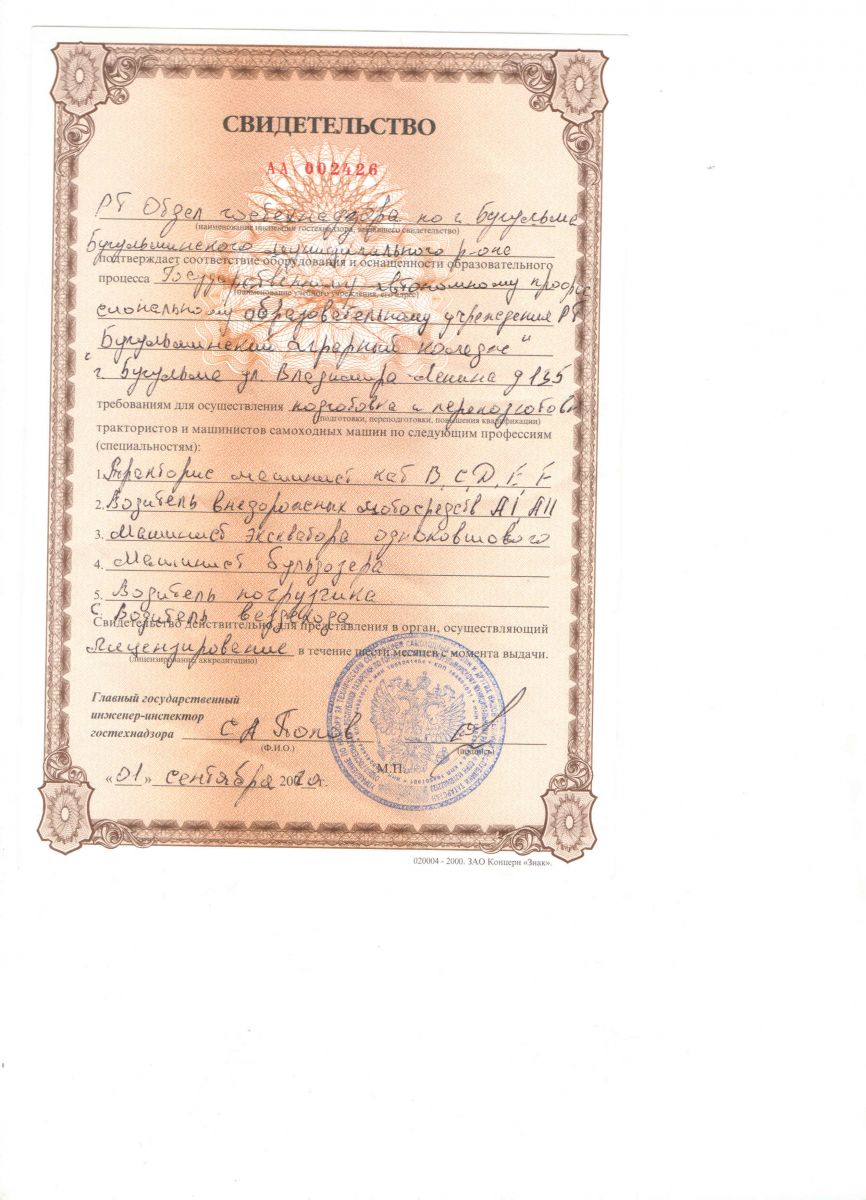 СВИДЕТЕЛЬСТВО
АА 002426
РТ Отдел гостехнадзора по г. Бугульма
(наименование инспекции гостехнадзора, выдавшего свидетельство)
Бугульминского муниципального р-она
подтверждает соответствие оборудования и оснащенности образовательного
процесса Государственному автономному профес
(наименование учебного учреждения, его адрес)
сиональному образовательному учреждения РТ
"Бугульминский аграрный колледж"
г. Бугульма ул. Владимира Ленина д 135
требованиям для осуществления подготовка и переподготовк
(подготовки, переподготовки, повышения квалификации)
трактористов и машинистов самоходных машин по следующим профессиям
(специальностям):
1. Тракторис машинист кат В, С, D, E, F
2. Водитель внедорожных мотосредств АI, АII
3. Машинист экскватора одноковшового
4. Машинист бульдозера
5. Водитель погрузчика
6. Водитель вездехода
Свидетельство действительно для представления в орган, осуществляющий
Лицензирование в течение шести месяцев с момента выдачи.
(лицензирование, аккредитацию)
Главный государственный
инженер-инспектор
гостехнадзора С А Попов
(Ф.И.О.) (подпись)
М.П.
«01» сентября 2020г.
020004 - 2000. ЗАО Концерн «Знак».